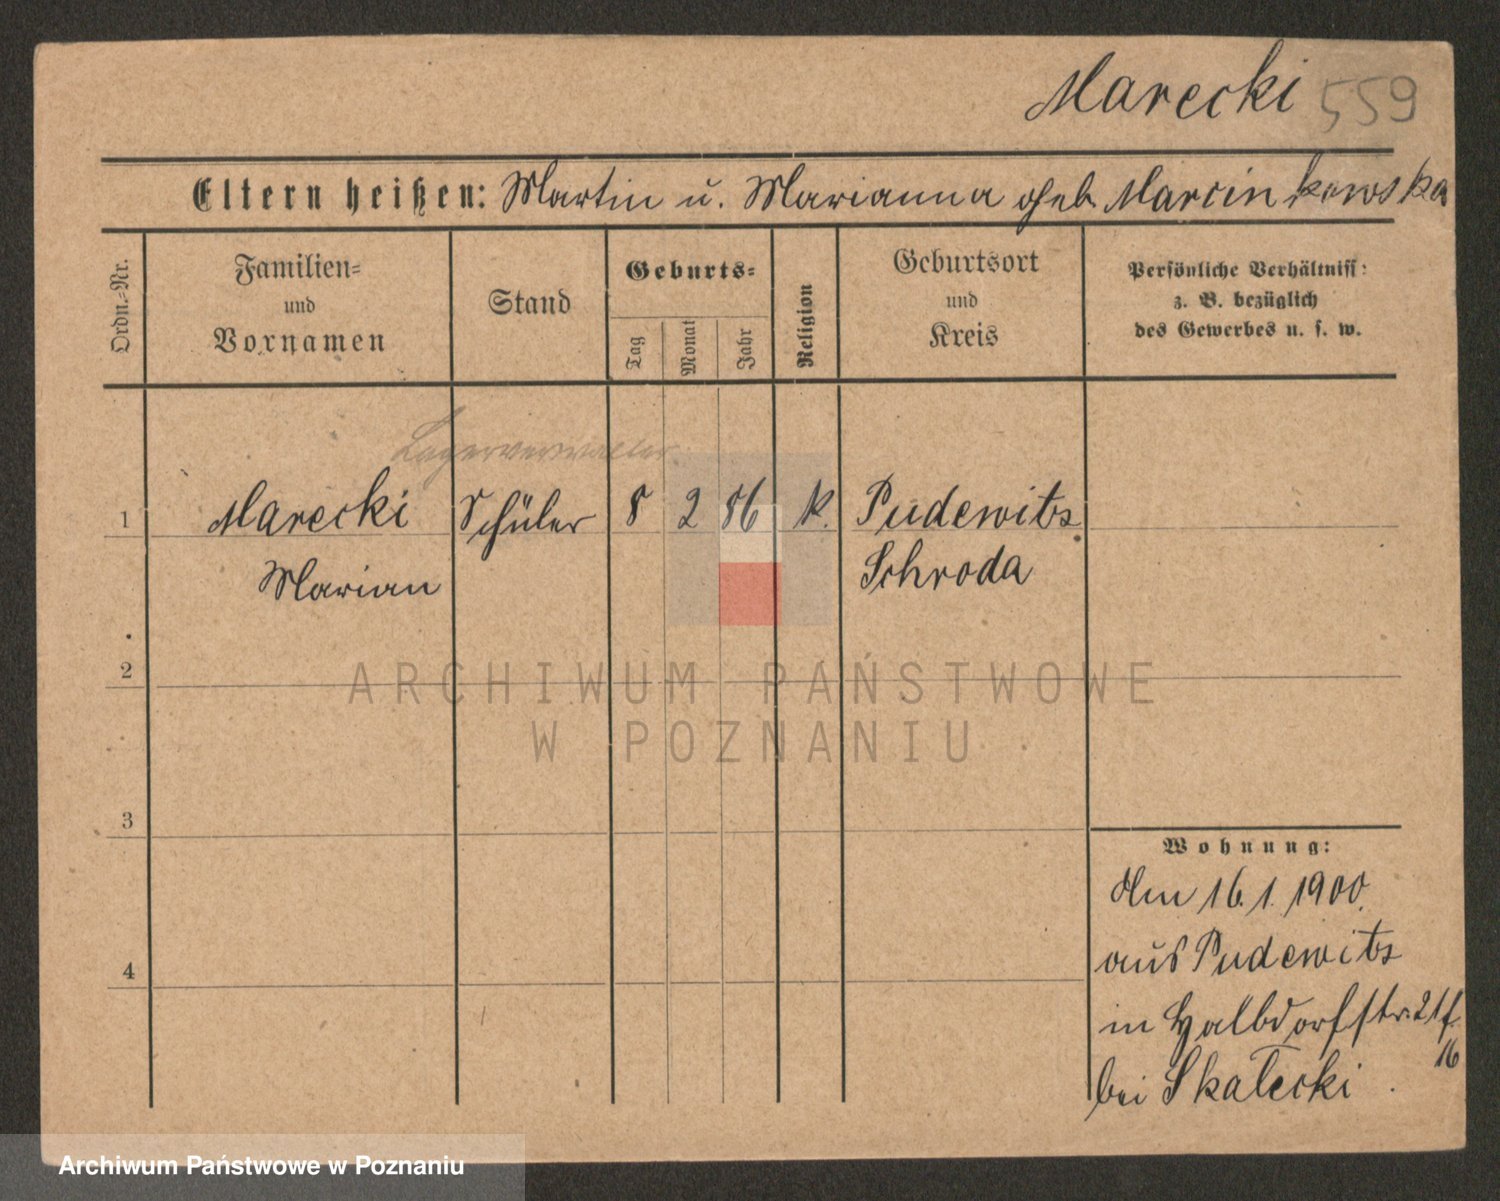 Marecki 559
Eltern heißen: Martin u. Marianna geb. Marcinkowska
Ordn.-Nr.
Familien-
und
Vornamen
Stand
Geburts-
Tag
Monat
Jahr
Religion
Geburtsort
und
Kreis
Persönliche Verhältniss:
z. B. bezüglich
des Gewerbes u. s. w.
Lagerverwalter
1 Marecki Schüler 8 2 86 k. Pudewitz
Marian Schroda
2
3
4
Wohnung:
Am 16.1.1900.
aus Pudewitz
in Halbdorfstr. 21 f.
16
bei Skałecki
ARCHIWUM PAŃSTWOWE
W POZNANIU
Archiwum Państwowe w Poznaniu